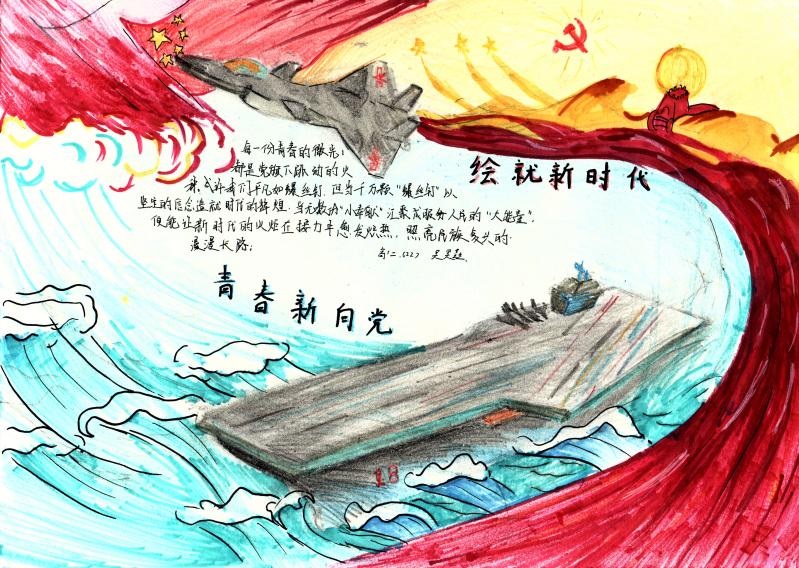 每一份青春的微光，
都是党旗下跃动的火
种，或许我们平凡如螺丝钉，但当千万颗“螺丝钉”以
坚定的信念造就时代的辉煌，当无数份“小奉献”汇聚成服务人民的“大能量”，
便能让新时代的火炬在接力中愈发炽热，照亮民族复兴的
漫漫长路。
高二
绘就新时代
青春新向党
18